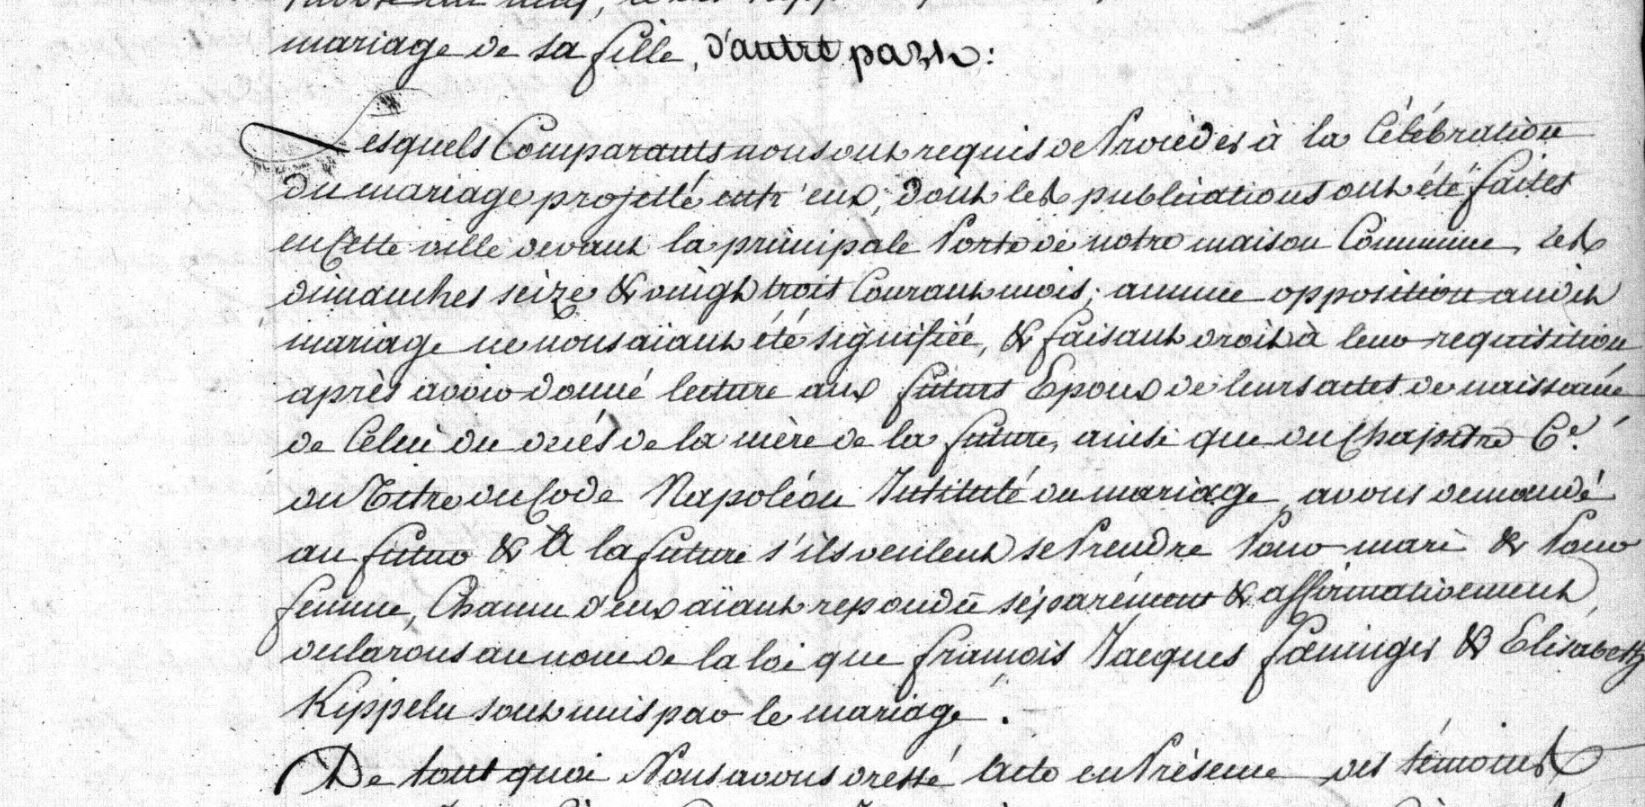 mariage de sa fille, d'autre part:
Lesquels Comparants nous ont requis de Procéder à la Célébration
du mariage projetté entr'eux, dont les publications ont été faites
en Cette ville devant la principale Porte de notre maison Commune, les
dimanches seize & vingt trois Courant mois; aucune opposition audit
mariage ne nous aiant été signifiée, & faisant droit à leur requisition
après avoir donné lecture aux futurs Epoux de leurs actes de naissance
de Celui du décés de la mère de la future, ainsi que du Chapitre 6e.
du Titre du Code Napoléon Intitulé du mariage, avons demandé
au futur & à la future s'ils veulent se Prendre Pour mari & Pour
femme, Chacun d'eux aïant repondu séparément & affirmativement,
declarons au nom de la loi que françois Jacques fæninger & Elisabeth
Kippelu sont unis par le mariage.
De tout quoi Nous avons dressé Acte en Présence des témoins